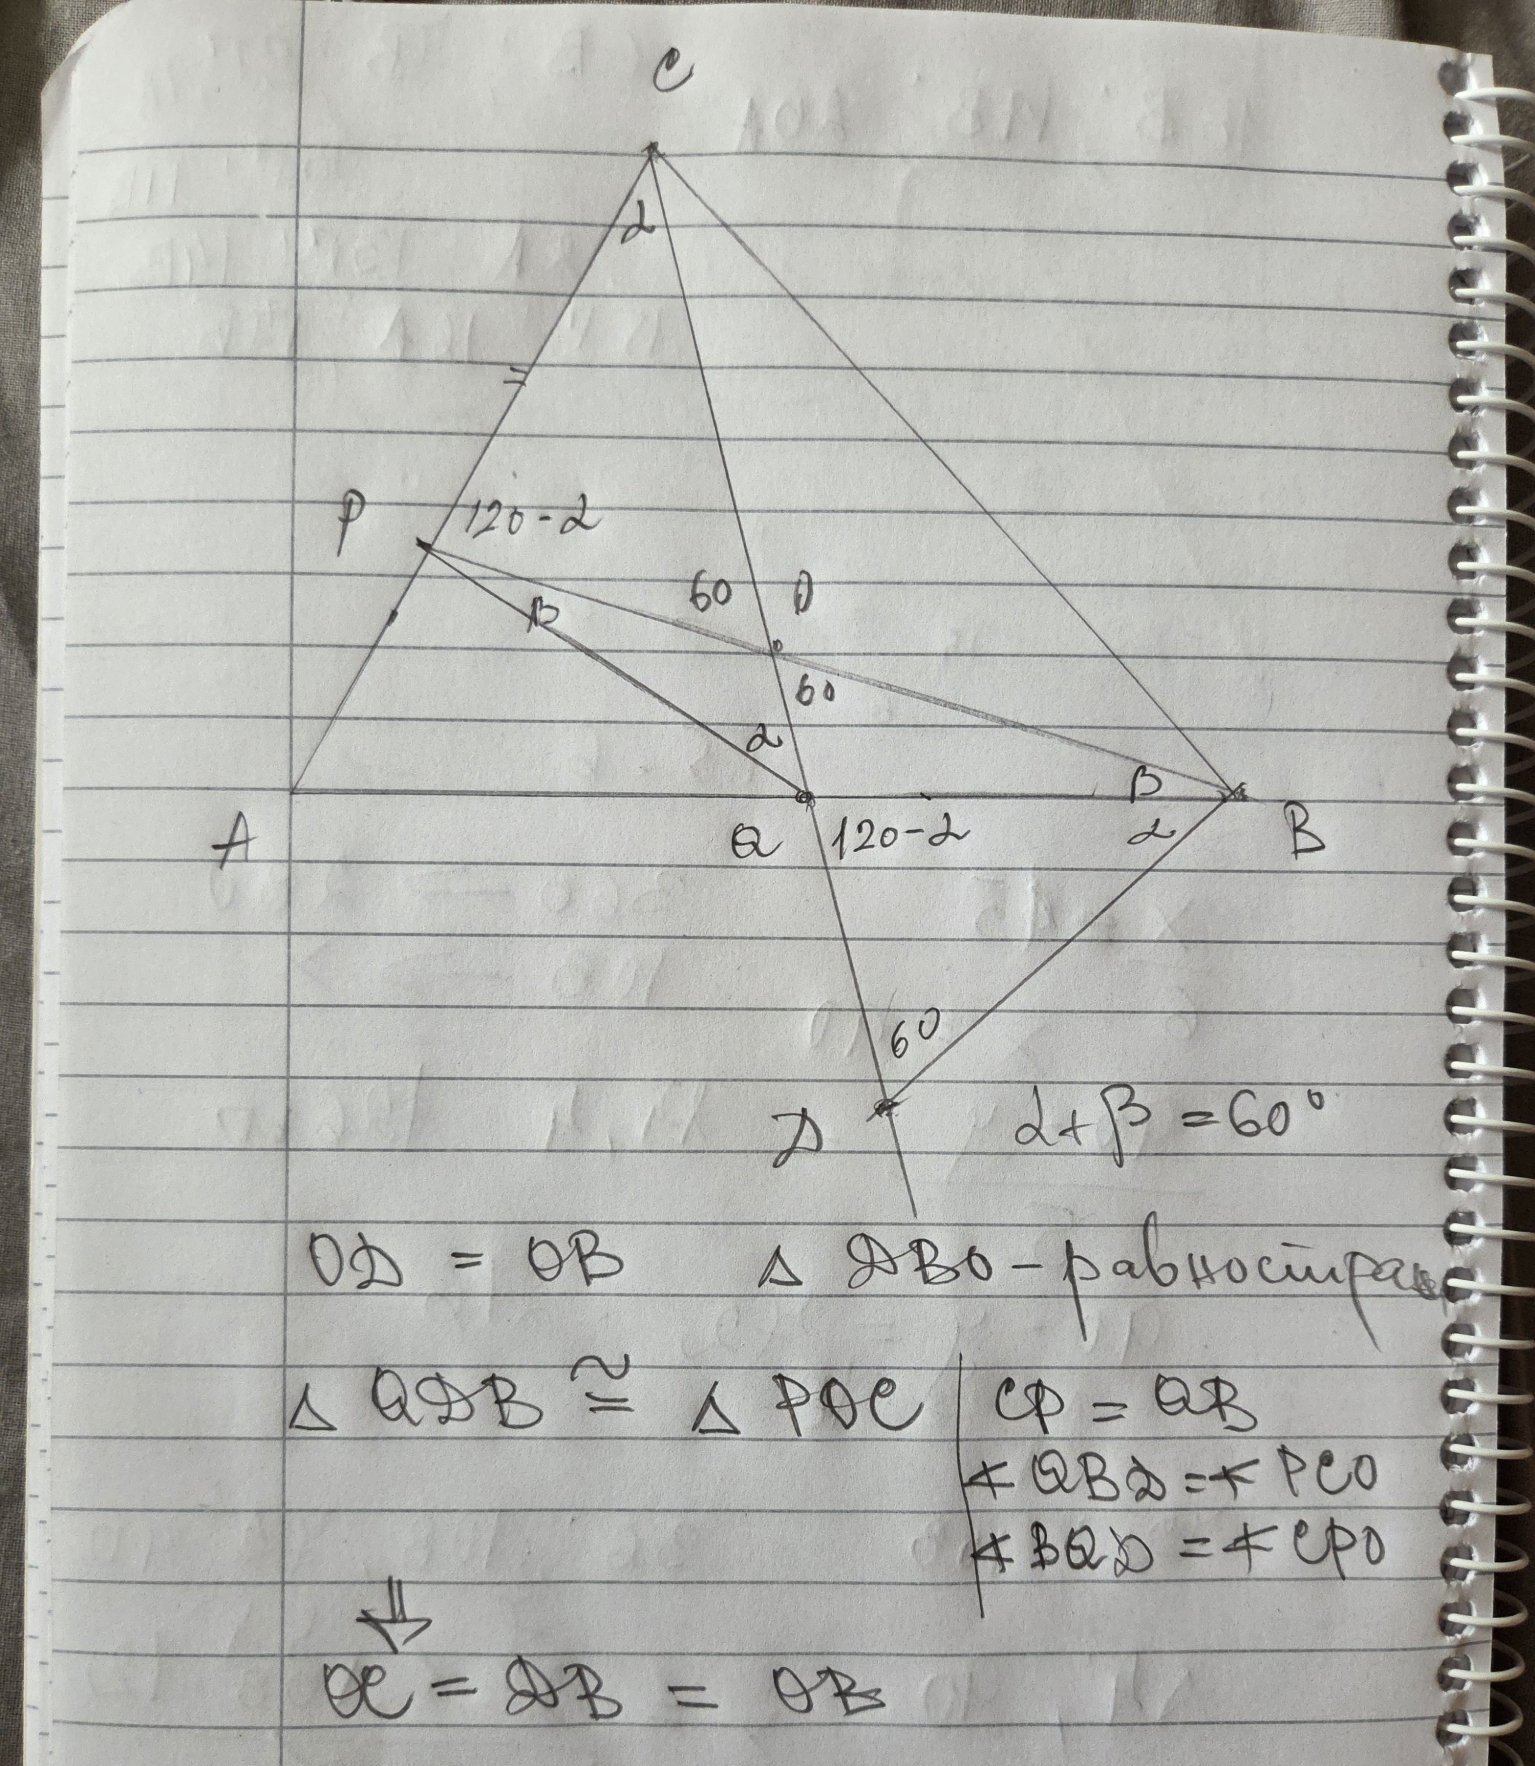 C
α
=
P 120-α
60 O
β
60
α
β
A Q 120-α α B
60
D α+β = 60°
OD = OB Δ DBO - равностран
Δ QDB ≅ Δ POC | CP = QB
∢ QBD = ∢ PCO
∢ BQD = ∢ CPO
⇓
OC = DB = OB